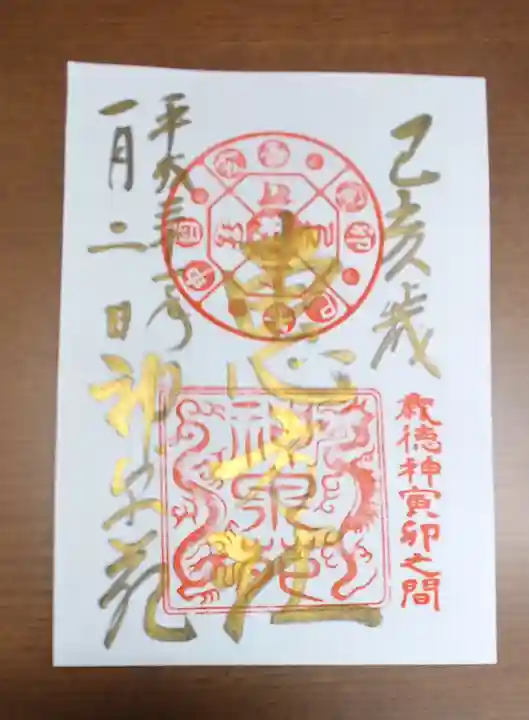 己亥歳
歳徳神寅卯之間
恵方社
神泉苑
平成三十一年
一月二日
神泉苑